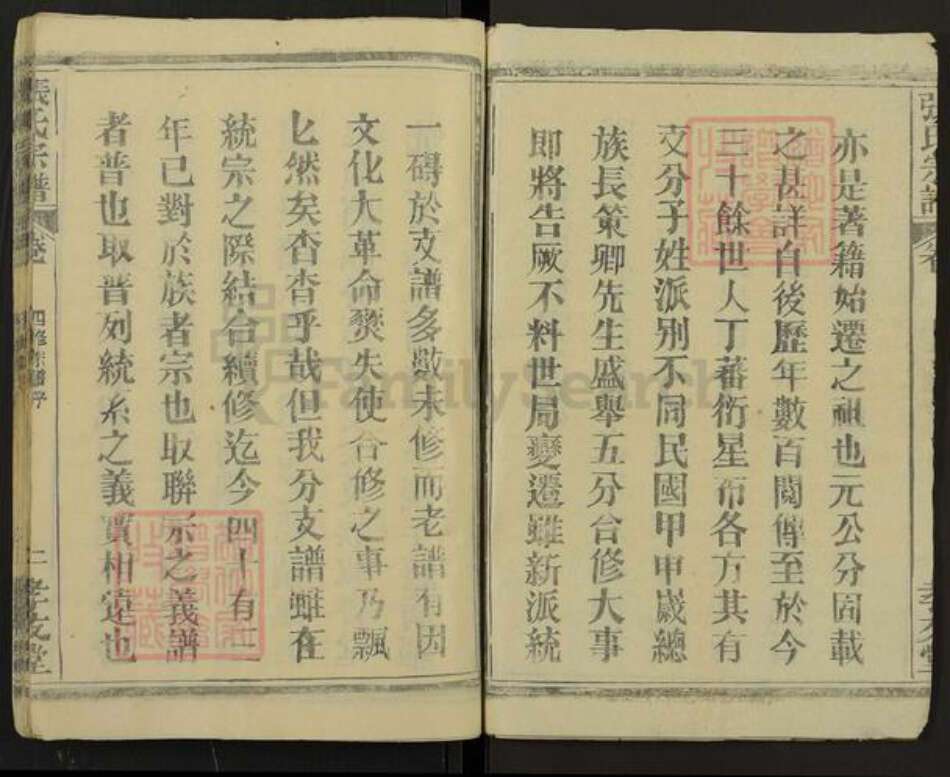 亦是著籍始遷之祖也元公分固載
之甚詳自後歷年數百閱傳至於今
三十餘世人丁蕃衍星布各方其有
支分子姓派别不同民國甲申歲總
族長策卿先生盛舉五分合修大事
即將告厥不料世局變遷雖新派統
一礙於支譜多數未修而老譜有因
文化大革命燹失使合修之事乃飄
匕然矣杳杳乎哉但我分支譜雖在
統宗之際結合續修迄今四十有二
年已對於族者宗也取聯宗之義譜
者普也取普列統系之義實相遠也
張氏宗譜
四修宗譜序
二
孝友堂
FamilySearch